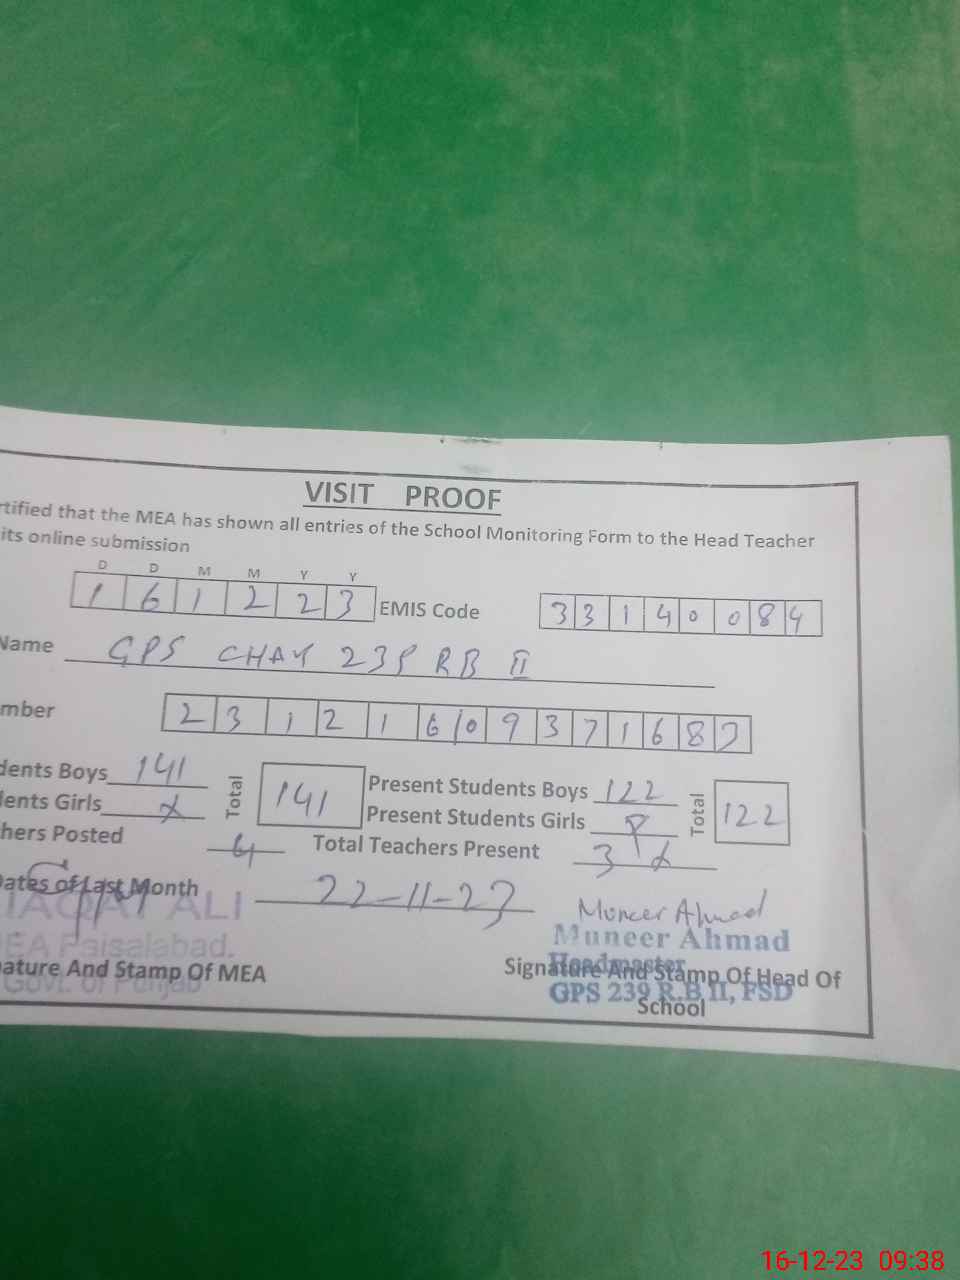 VISIT PROOF
rtified that the MEA has shown all entries of the School Monitoring Form to the Head Teacher
its online submission
D D M M Y Y
1 6 1 2 2 3 EMIS Code 3 3 1 4 0 0 8 4
Name GPS CHAK 239 RB II
mber 2 3 1 2 1 6 0 9 3 7 1 6 8
dents Boys 141 Total 141 Present Students Boys 122 Total 122
dents Girls Present Students Girls
hers Posted 4 Total Teachers Present 3
Dates of Last Month 22-11-23
Muneer Ahmad
LIAQAT ALI
Muneer Ahmad
MEA Faisalabad.
Headmaster
ature And Stamp Of MEA Signature And Stamp Of Head Of
Govt. of Punjab
GPS 239 R.B II, FSD
School
16-12-23 09:38